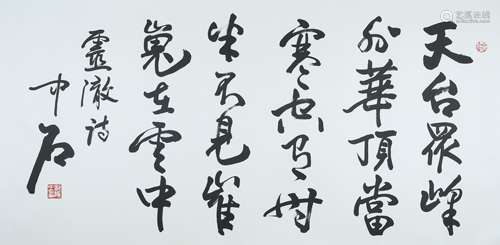 天台眾峰
外華頂當
寒空有時
半不見崔
嵬在雲中
靈澈詩
中石